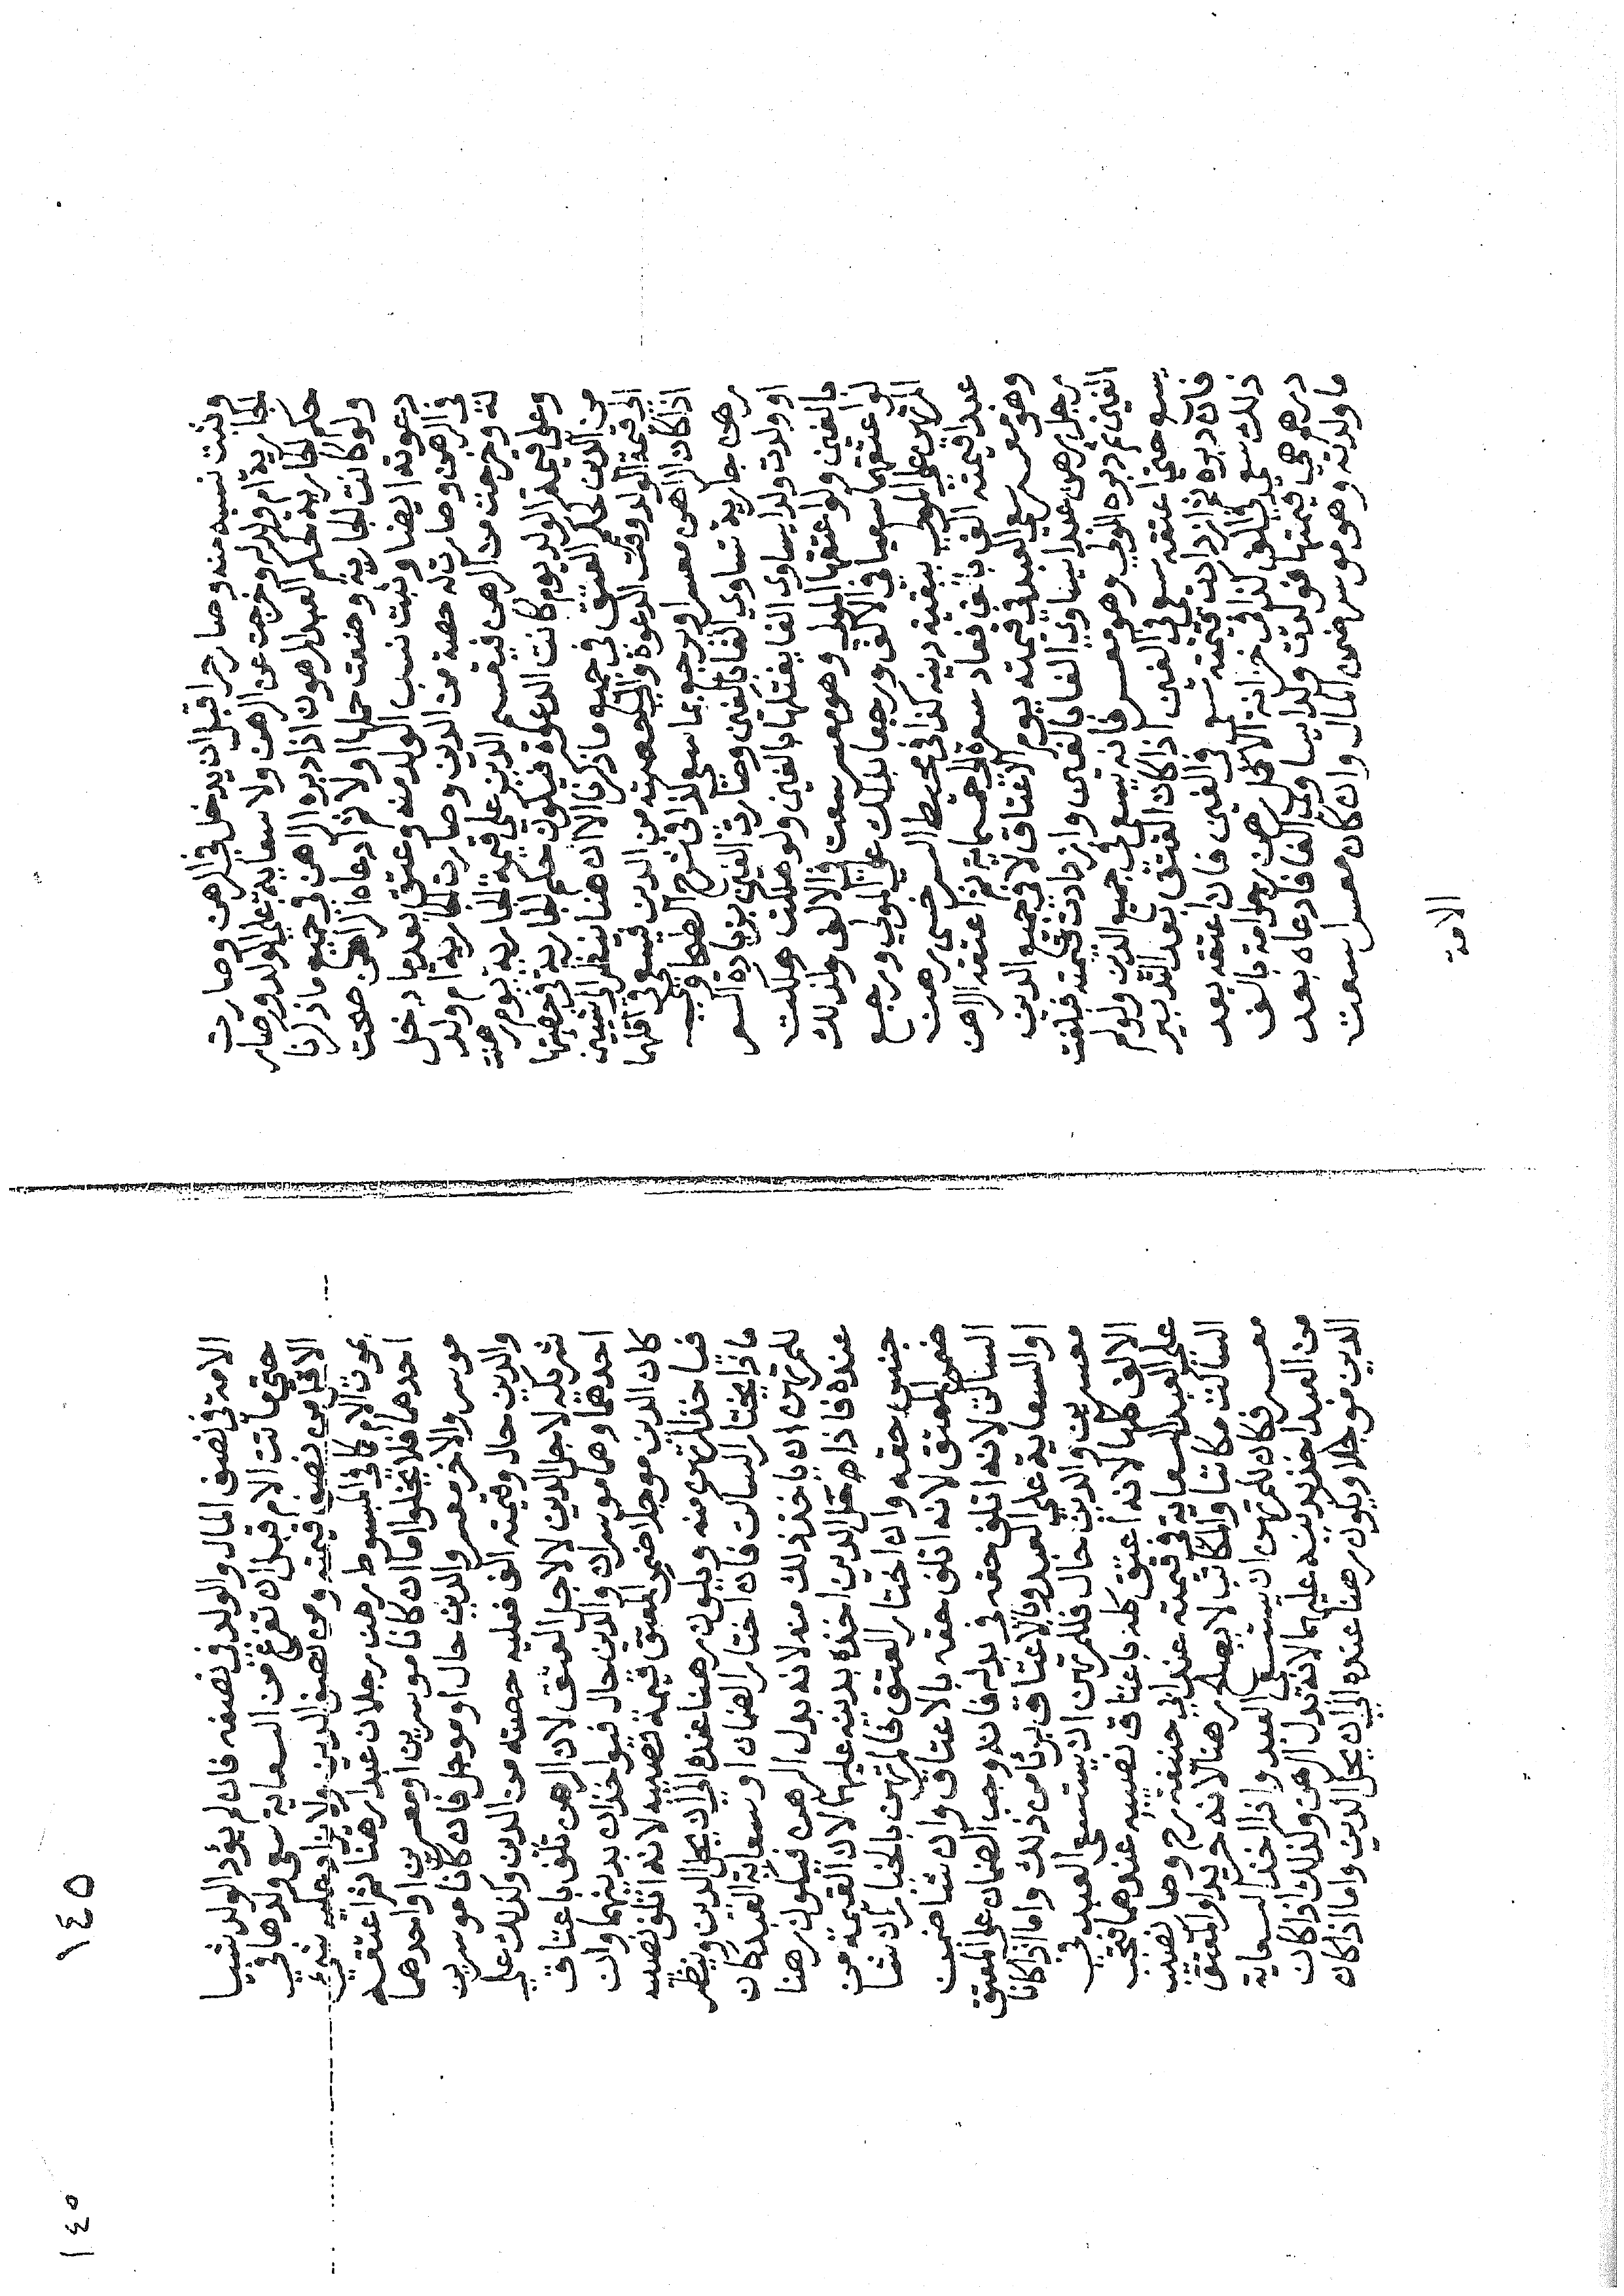 وثبت نسبه منه وصار حرا قبل ان يدخل في الرهن وصارت
الجارية ام ولد له وخرجت عن الرهن ولا سعاية على الولد وصار
حكم الجارية حكم العبد المرهون اذا دبره الراهن في جميع ما ذكرنا
ولو كانت الجارية وضعت حملها اولا ثم ادعاه الراهن صحت
دعوته ايضا وثبت نسب الولد منه وعتق بعدما دخل
في الرهن وصارت له حصة من الدين وصارت الجارية ام ولد
له وخرجت من الرهن فيقسم الدين على قيمة الجارية يوم رهنت
وعلى قيمة الولد يوم كانت الدعوة فيكون حكم الجارية في حصتها
من الدين حكم العتق في جميع ما ذكرنا الا ان هنا ينظر الى شيئين
الى قيمة الولد وقت الدعوة والى حصته من الدين فيسعى في اقلهما
اذا كان الراهن معسرا ويرجع بما سعى كذا في شرح الطحاوي
رهن جارية تساوي الفا بالفين وصارت الفين بزيادة السعر
او ولدت ولدا يساوي الفا يفتكها بالفين ولو هلكت هلكت
بالفين ولو اعتقها المولى وهو معسر سعت في الالف وكذلك
لو اعتقهما سعيا في الالف ورجعا بذلك على المولى ورجع
المرتهن على المولى ببقية دينه كذا في محيط السرخسي رهن
عبدا قيمته الف بالف فعاد سعره الى خمسماية ثم اعتقه الراهن
وهو معسر سعى العبد في قيمته يوم الاعتاق لا في جميع الدين
رجل رهن عبدا يساوي الفا بالفين وازدادت قيمته فبلغت
الفين ثم دبره المولى وهو معسر فانه يسعى في جميع الدين ولو لم
يسع حتى اعتقه سعى في الفين اذا كان العتق بعد التدبير
فان دبره ثم ازدادت قيمته تسعى في الفين فان اعتقه بعد
ذلك سعى في الف كذا في خزانة الاكمل رهن رجل امة بالف
درهم هي قيمتها فولدت ولدا يساوي الفا فادعاه بعد
ما ولدته وهو موسر ضمن المال وان كان معسرا سعت
الامة
١٤٥
١٤٥
الامة في نصف المال والولد في نصفه فان لم يؤد الولد شيا
حتى ماتت الام قبل ان تفرغ من السعاية سعى ولدها في
الاقل من نصف قيمته ومن نصف الدين ولا يزاد عليه شيء
بموت الام كذا في المبسوط رهن رجلان عبدا رهنا ثم اعتقه
احدهما فلا يخلوا اما ان كانا موسرين او معسرين او احدهما
موسر والاخر معسر والدين حال او موجل فان كانا موسرين
والدين حال وقيمته الف فعليه حصته من الدين وكذلك على
شريكه لاجل الدين لا لاجل العتق لان الرهن تلف باعتاق
احدهما وهما موسران والدين حال فيواخذان بدينهما وان
كان الدين موجلا ضمن المعتق قيمة نصيبه لانه اتلف نصيبه
فياخذ المرتهن منه ويكون رهنا عنده الى ان يحل الدين وينظر
ماذا يختار الساكت فان اختار الضمان او سعاية العبد كان
للمرتهن ان ياخذ ذلك منه لانه بدل الرهن فيكون رهنا
عنده فاذا حل الدين اخذه بدينه عليهما لان القيمة من
جنس حقه وان اختار العتق فالمرتهن بالخيار ان شا
ضمن المعتق لانه اتلف حقه بالاعتاق وان شا ضمن
الساكت لانه اتلف حقه في بدله فانه وجب الضمان على المعتق
او السعاية على العبد وبالاعتاق برئا من ذلك واما اذا كانا
معسرين والدين حال فللمرتهن ان يستسعى العبد في
الالف كلها لانه اعتق كله باعتاق نصيبه عندهما فتجب
على العبد السعاية في قيمته عند ابي حنيفة رح وصار نصيب
الساكت مكاتبا والمكاتب لا يصلح رهنا لانه حر يدا والمعتق
معسر فكان للمرتهن ان يستسعى العبد واذا اخذ السعاية
من العبد اخذ بدينه عليهما لانه بدل الرهن وكذلك اذا كان
الدين موجلا ويكون رهنا عنده الى ان يحل الدين واما اذا كان